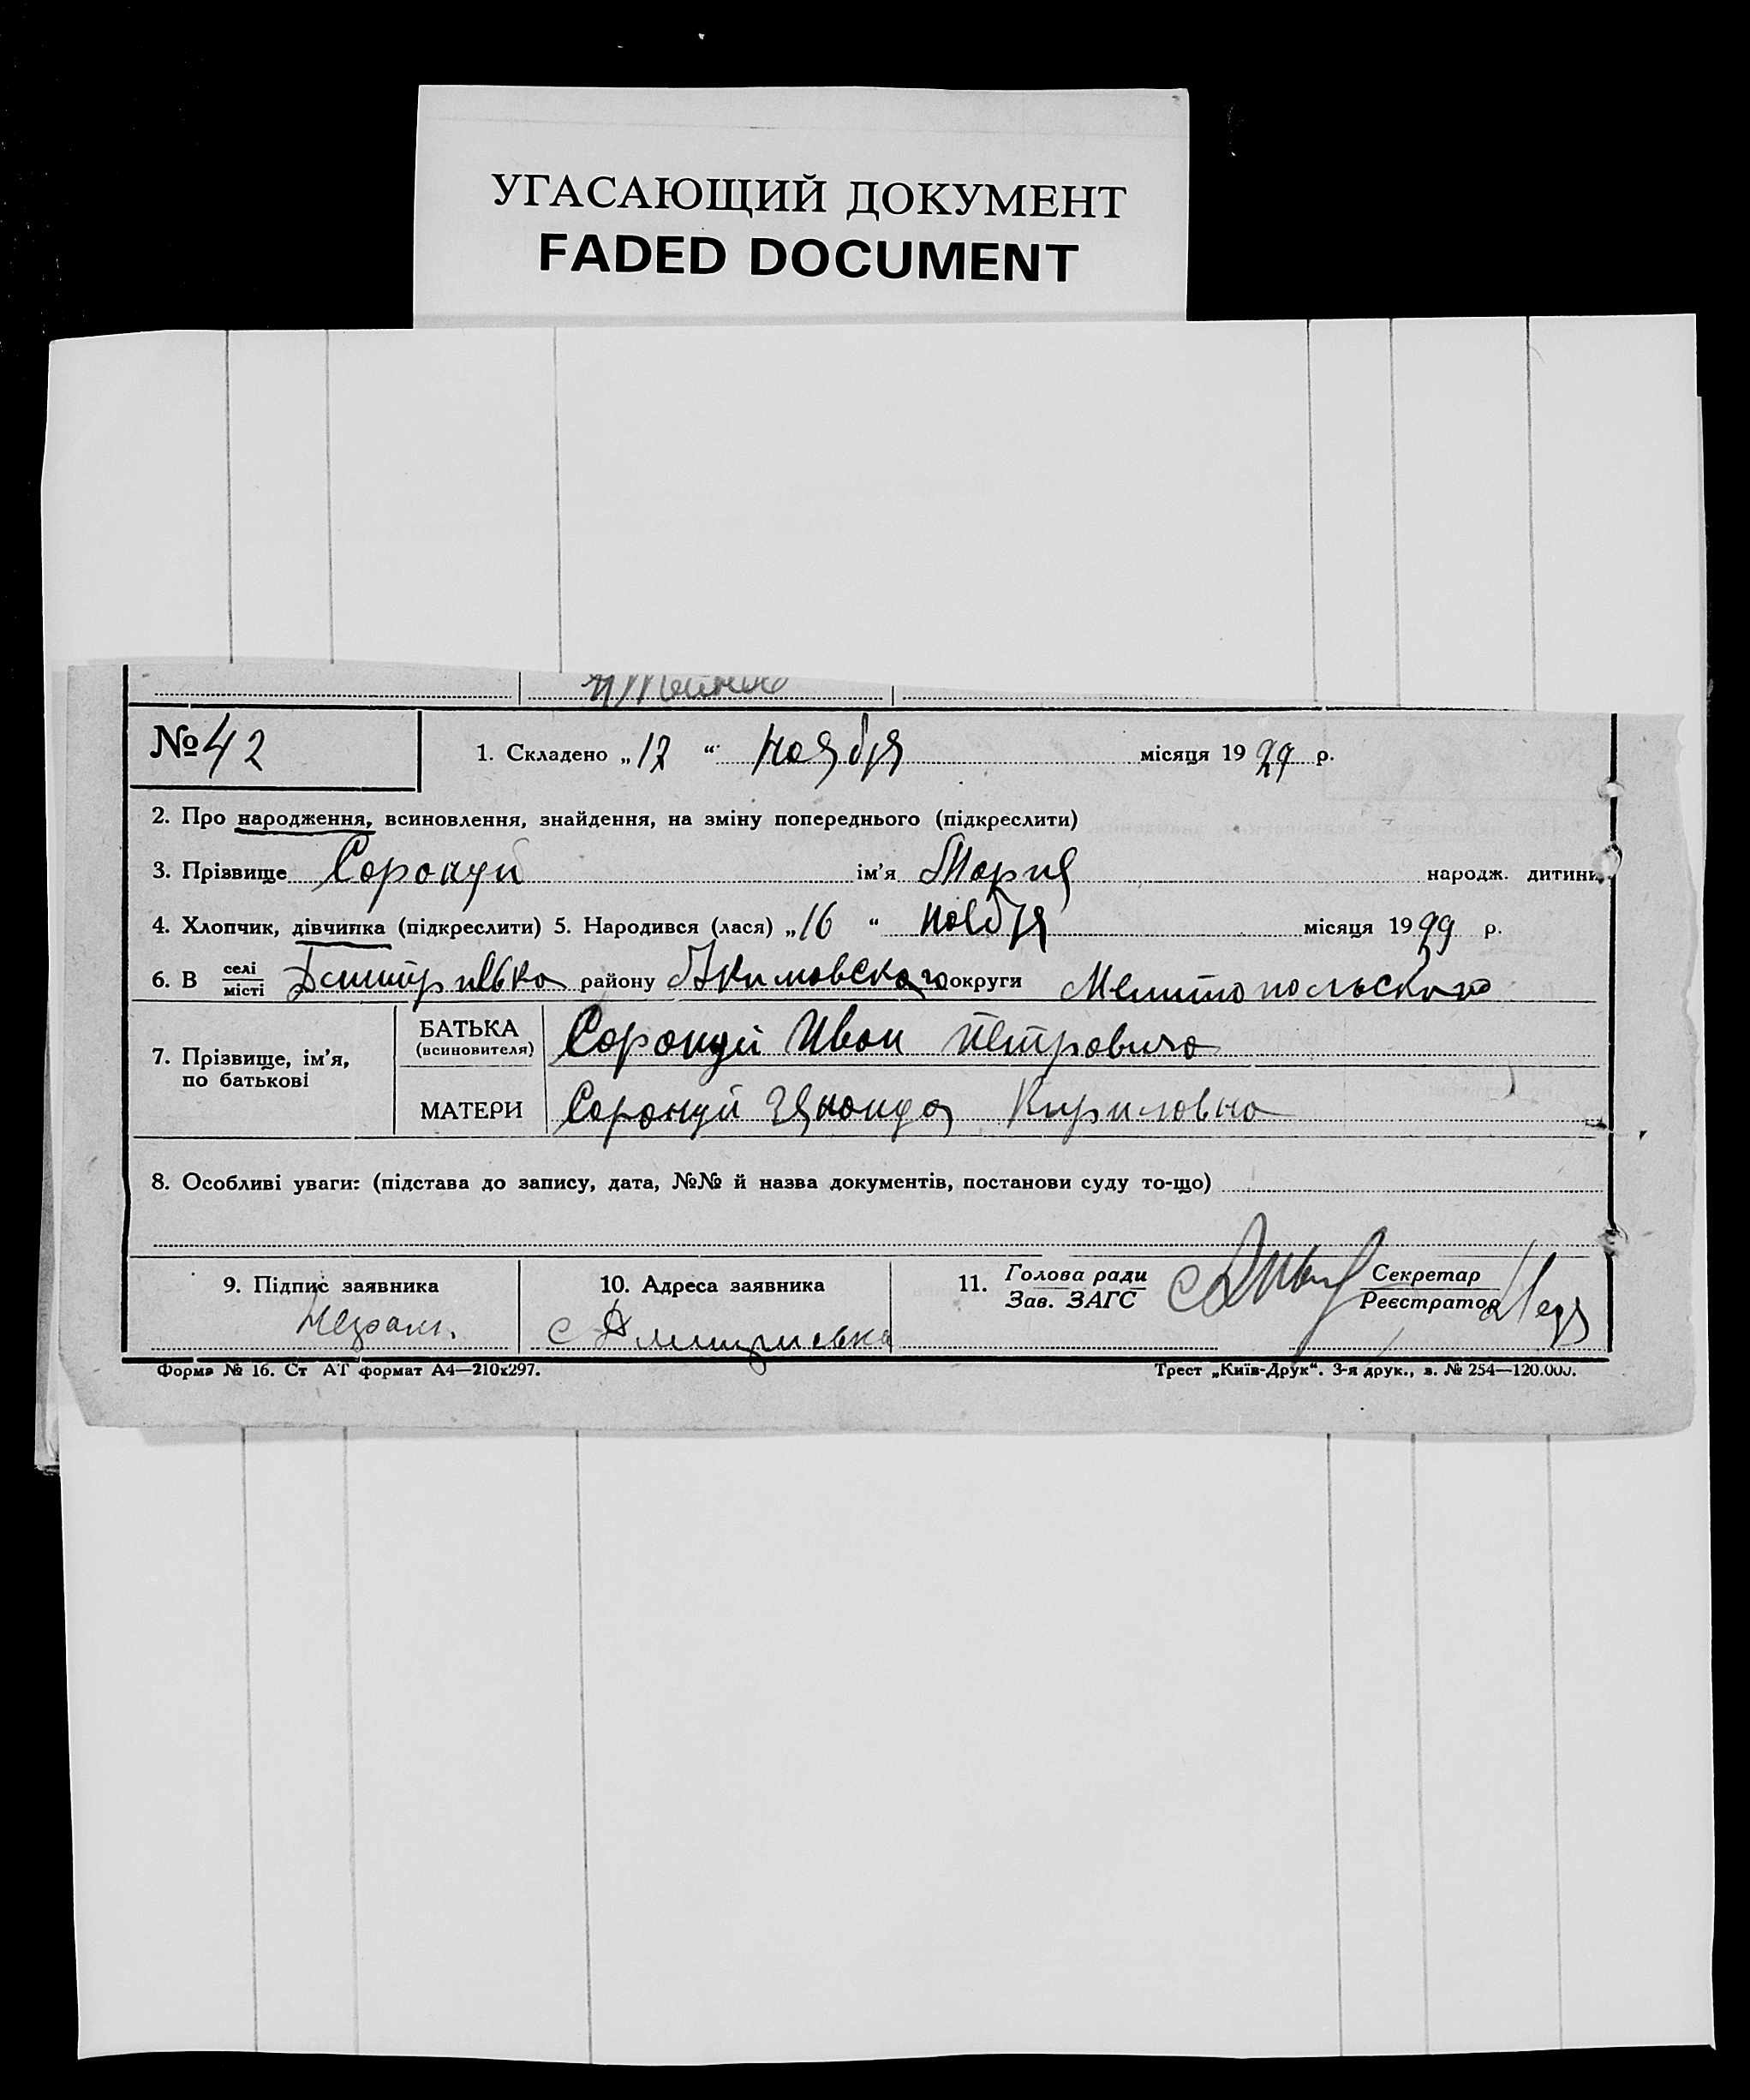 УГАСАЮЩИЙ ДОКУМЕНТ
FADED DOCUMENT
№ 42
1. Складено „ 12 “ ноября місяця 19 29 р.
2. Про народження, всиновлення, знайдення, на зміну попереднього (підкреслити)
3. Прізвище Соронуй ім'я Мария народж. дитини
4. Хлопчик, дівчинка (підкреслити) 5. Народився (лася) „ 16 “ ноебря місяця 19 29 р.
6. В селі місті Дмитриевка району Акимовского округи Мелитопольского
7. Прізвище, ім'я, по батькові
БАТЬКА (всиновителя) Соронуй Иван Петрович
МАТЕРИ Соронуй Кириловна
8. Особливі уваги: (підстава до запису, дата, №№ й назва документів, постанови суду то-що)
9. Підпис заявника 10. Адреса заявника 11. Голова ради Зав. ЗАГС Секретар Реєстратор
Неграм. с Дмитриевка
Форма № 16. Ст АТ формат А4—210х297. Трест „Київ-Друк“. 3-я друк., з. № 254—120.000.